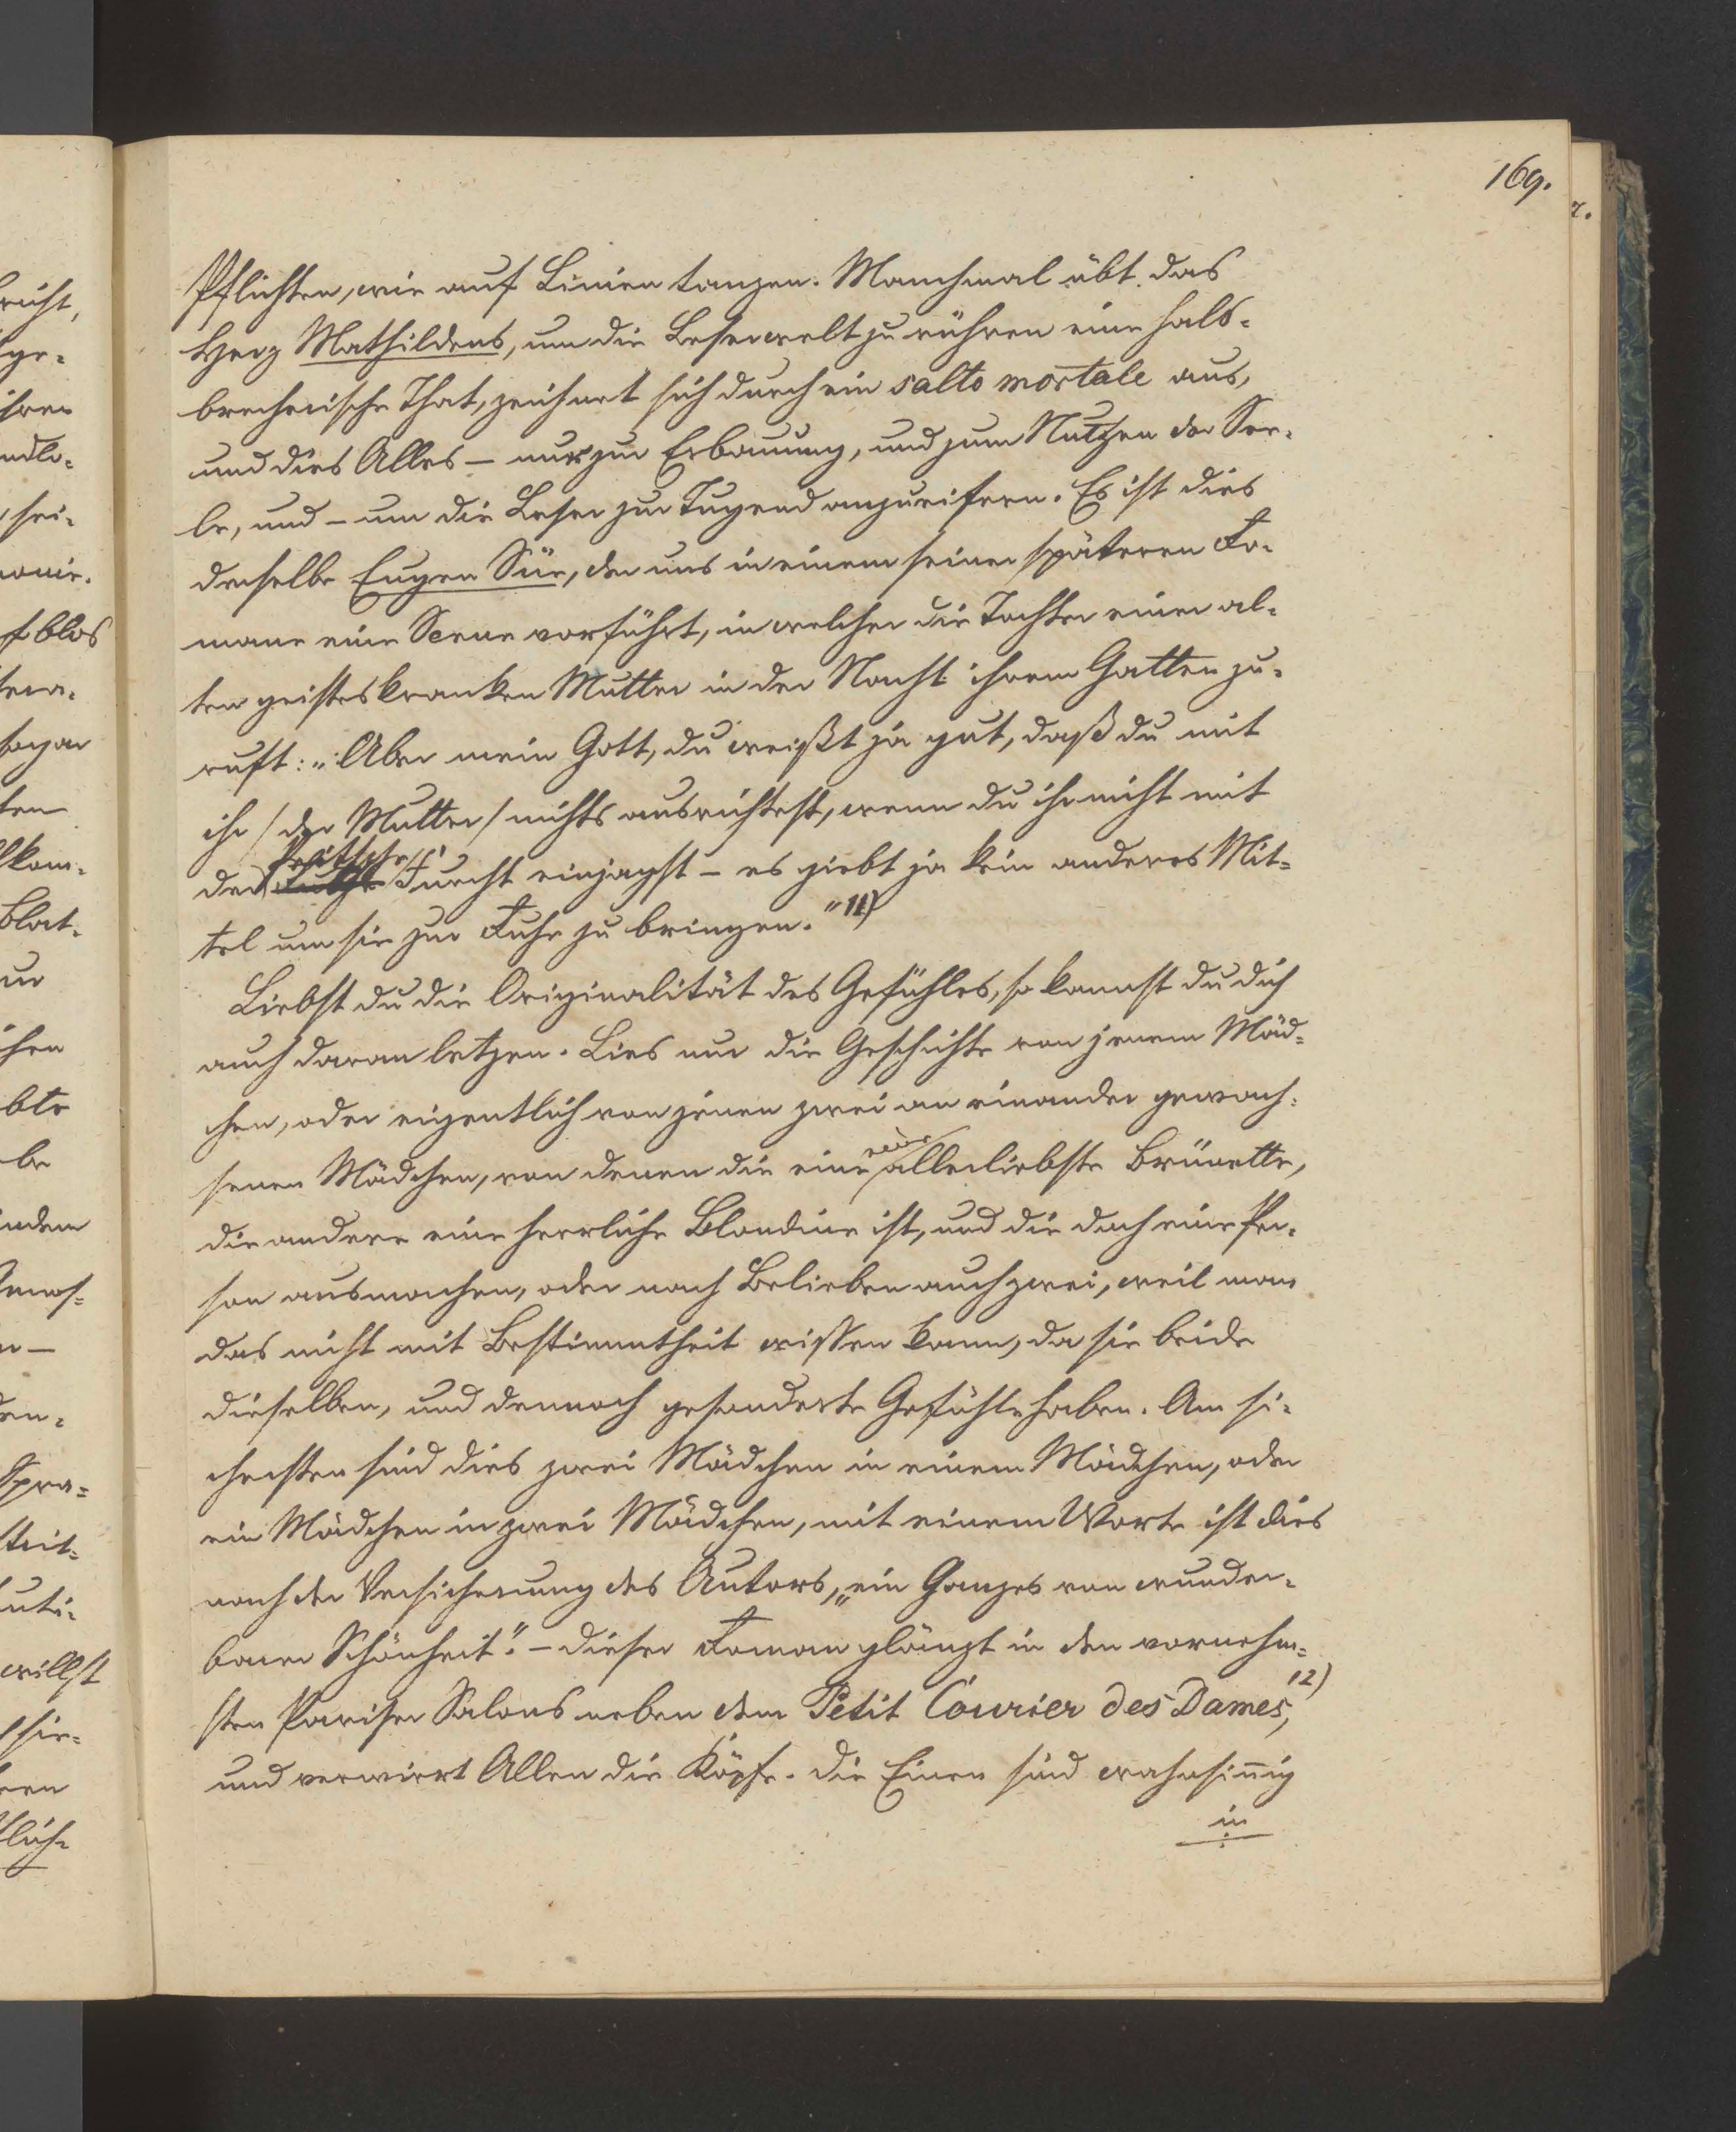 169.
Pflichten, wie auf Linien tanzen. Manchmal übt das
Herz Mathildens, um die Leserwelt zu rühren eine hals-
brecherische That, zeichnet sich durch ein salto mortale aus,
und dies Alles – nur zur Erbauung, und zum Nutzen der See-
le, und – um die Leser zur Tugend anzueifern. Es ist dies
derselbe Eugen Süe, der uns in einem seiner späteren Ro-
mane eine Scene vorführt, in welcher die Tochter einer al-
ten geisteskranken Mutter in der Nacht ihrem Gatten zu-
ruft: „Aber mein Gott, du weißt ja gut, daß du mit
ihr / der Mutter / nichts ausrichtest, wenn du ihr nicht mit
der Peitsche Furcht einjagst – es giebt ja kein anderes Mit-
tel um sie zur Ruhe zu bringen.“ 11)
Liebst du die Originalität des Gefühles, so kannst du dich
auch daran letzen. Lies nur die Geschichte von jenem Mäd-
chen, oder eigentlich von jenen zwei an einander gewach-
senen Mädchen, von denen die eine eine allerliebste Brünette,
die andere eine herrliche Blondine ist, und die doch eine Per-
son ausmachen, oder nach Belieben auch zwei, weil man
das nicht mit Bestimmtheit wissen kann, da sie beide
dieselben, und dennoch gesonderte Gefühle haben. Am si-
chersten sind dies zwei Mädchen in einem Mädchen, oder
ein Mädchen in zwei Mädchen, mit einem Worte ist dies
nach der Versicherung des Autors, „ein Ganzes von wunder-
barer Schönheit“. – Dieser Roman glänzt in den vornehm-
sten Pariser Salons neben dem Petit Courier des Dames, 12)
und verwirrt Allen die Köpfe. Die Einen sind wahnsinnig
in